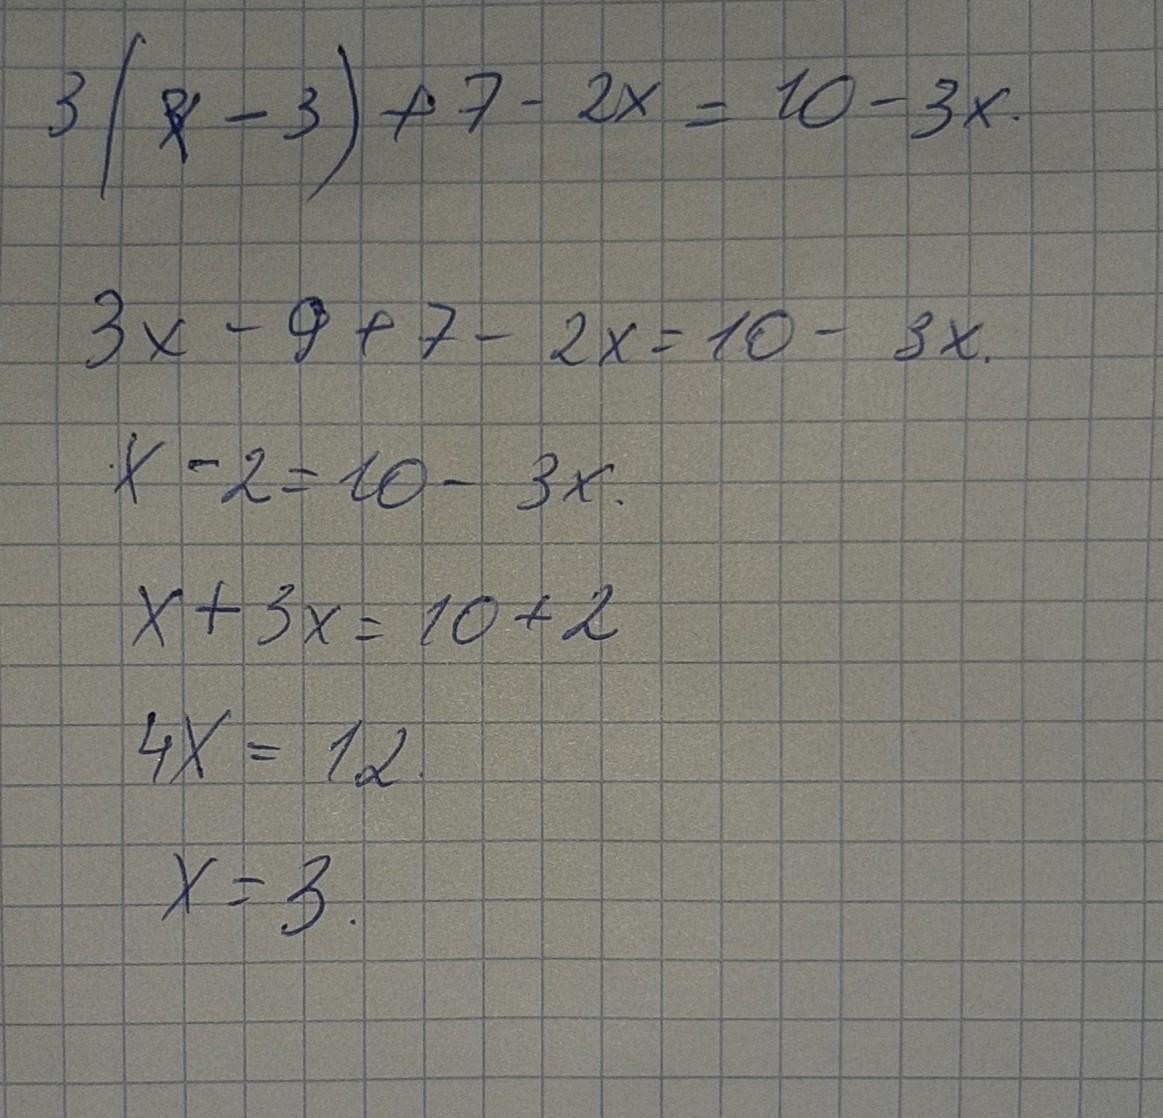 3(x - 3) + 7 - 2x = 10 - 3x.
3x - 9 + 7 - 2x = 10 - 3x.
x - 2 = 10 - 3x.
x + 3x = 10 + 2
4x = 12.
x = 3.